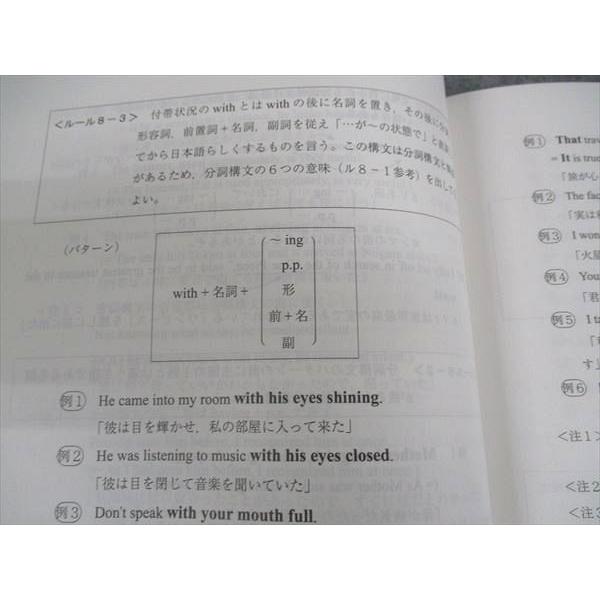 <ルール8-3> 付帯状況のwithとはwithの後に名詞を置き,その後に分
形容詞,前置詞+名詞,副詞を従え「…が〜の状態で」と直
てから日本語らしくするものを言う。この構文は分詞構文と
があるため,分詞構文の6つの意味(ル8-1参考)を出して
よい。
(パターン)
〜ing
p.p.
with+名詞+
形
前+名
副
例1 He came into my room with his eyes shining.
「彼は目を輝かせ,私の部屋に入って来た」
例2 He was listening to music with his eyes closed.
「彼は目を閉じて音楽を聞いていた」
例3 Don't speak with your mouth full.
例1 That
= It is
「旅が
例2 The
「実は
例3 I
「火星
例4 You
「君
例5 I
す」
例6
<注1>
<注2
<注3